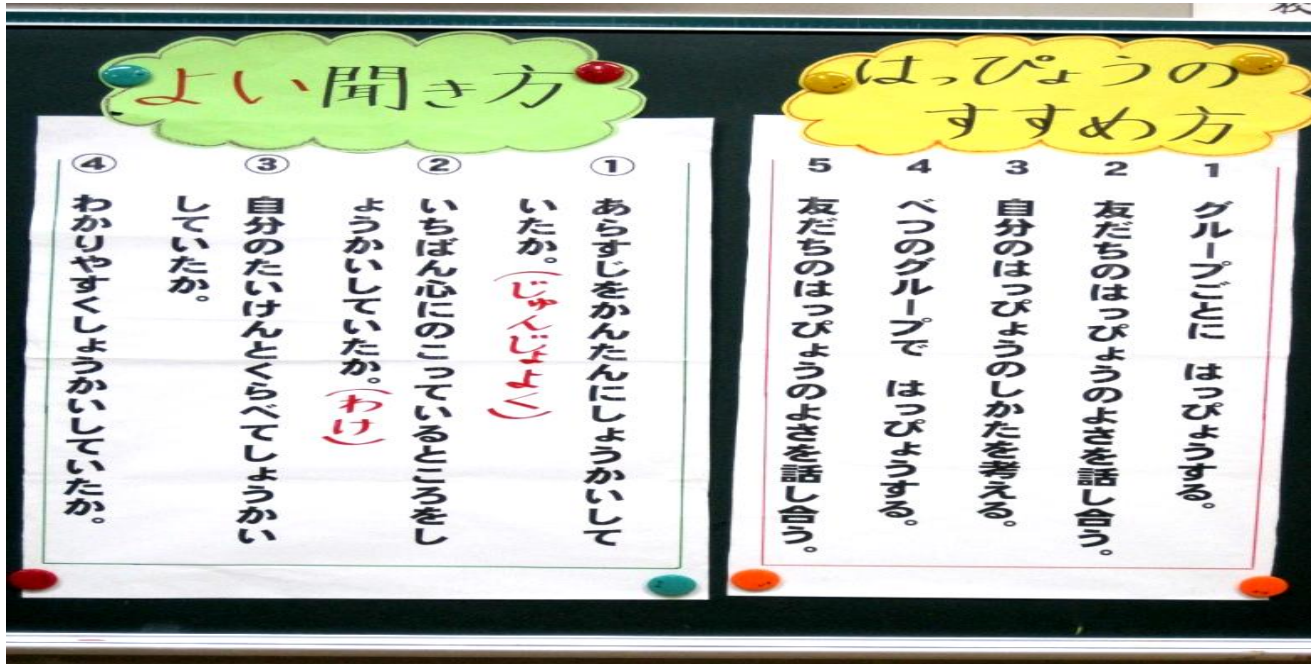 はっぴょうの
すすめ方
1 グループごとに はっぴょうする。
2 友だちのはっぴょうのよさを話し合う。
3 自分のはっぴょうのしかたを考える。
4 べつのグループで はっぴょうする。
5 友だちのはっぴょうのよさを話し合う。
よい聞き方
① あらすじをかんたんにしょうかいして
いたか。(じゅんじょよく)
② いちばん心にのこっているところをし
ょうかいしていたか。(わけ)
③ 自分のたいけんとくらべてしょうかい
していたか。
④ わかりやすくしょうかいしていたか。